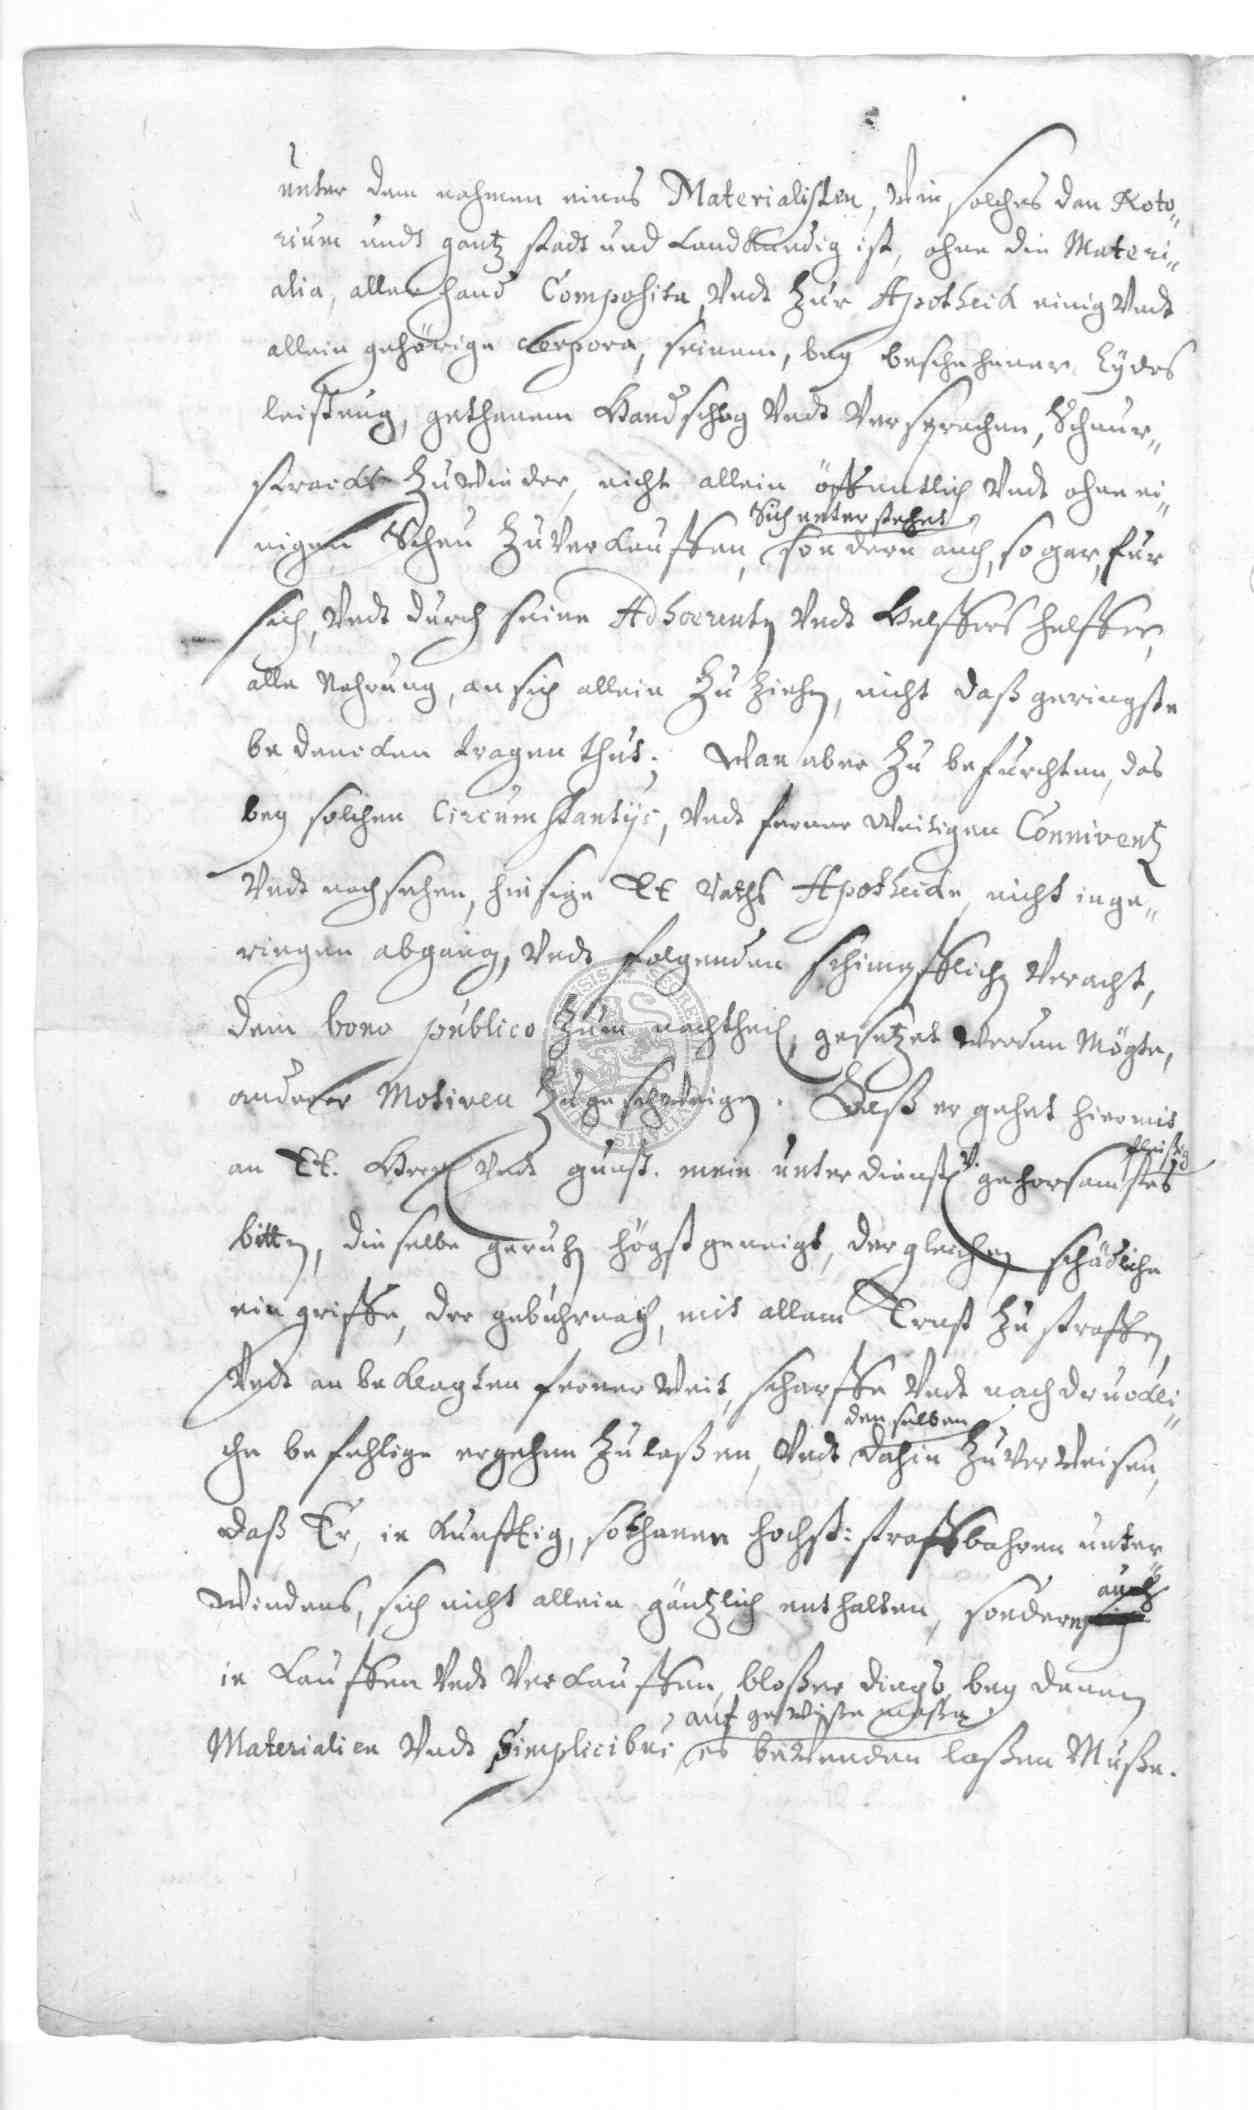 unter dem nahmen eines Materialisten, wie solches den Noto„
rium undt gantz stadt und Landkundig ist, ohne die Materi„
alia, aller hand Composita, Undt zur Apotheick einig Undt
allein gehörige corpora, seinem, bey beschehener Eydes
leistung, gethanem Handschlag Undt Versprechen, Schnur„
stracks zuwieder, nicht allein öffentlich Undt ohne ei„
Sich unterstehet
nigen Scheu zuverkauffen, sondern auch, so gar, fur
sich, Undt durch seine Adhaerenten Undt Helffers helffer,
alle Nahrung, an sich allein zu ziehen, nicht daß geringste
bedencken tragen thut; Wan aber zu befürchten, das
bey solchen Circumstantijs, Undt ferner weitigen Conniventz
Undt nachsehen, hiesige EE Raths Apothecke nicht in ge„
ringen abgang, Undt folgenden schimpfflichen Veracht,
dem bono publico zum nachtheil, gesetzet werden Mögte,
anderer Motiven zugeschweigen. Alß ergehet hiermit
fleißig
an EE. Herrl. Undt gunst. mein unterdienstl. V. gehorsambstes
bitten, dieselbe geruhen högst geneigt, dergleichen schädliche
eingriffe, der gebuhr nach, mit allem Ernst zu straffen,
Undt an beklagten ferner weit, scharffe Undt nachdruckli„
denselben
che befehlige ergehen zulaßen, Undt dahin zuverweisen,
daß Er, in Kunfftig, sothanen hochst: straffbahren unter„
auch
windens, sich nicht allein gäntzlich enthalten, sondern
in Kauffen Undt Verkauffen, bloßer dings bey denen
auf gewiße maße
Materialien Undt Simplicibus es bewenden laßen Müße.